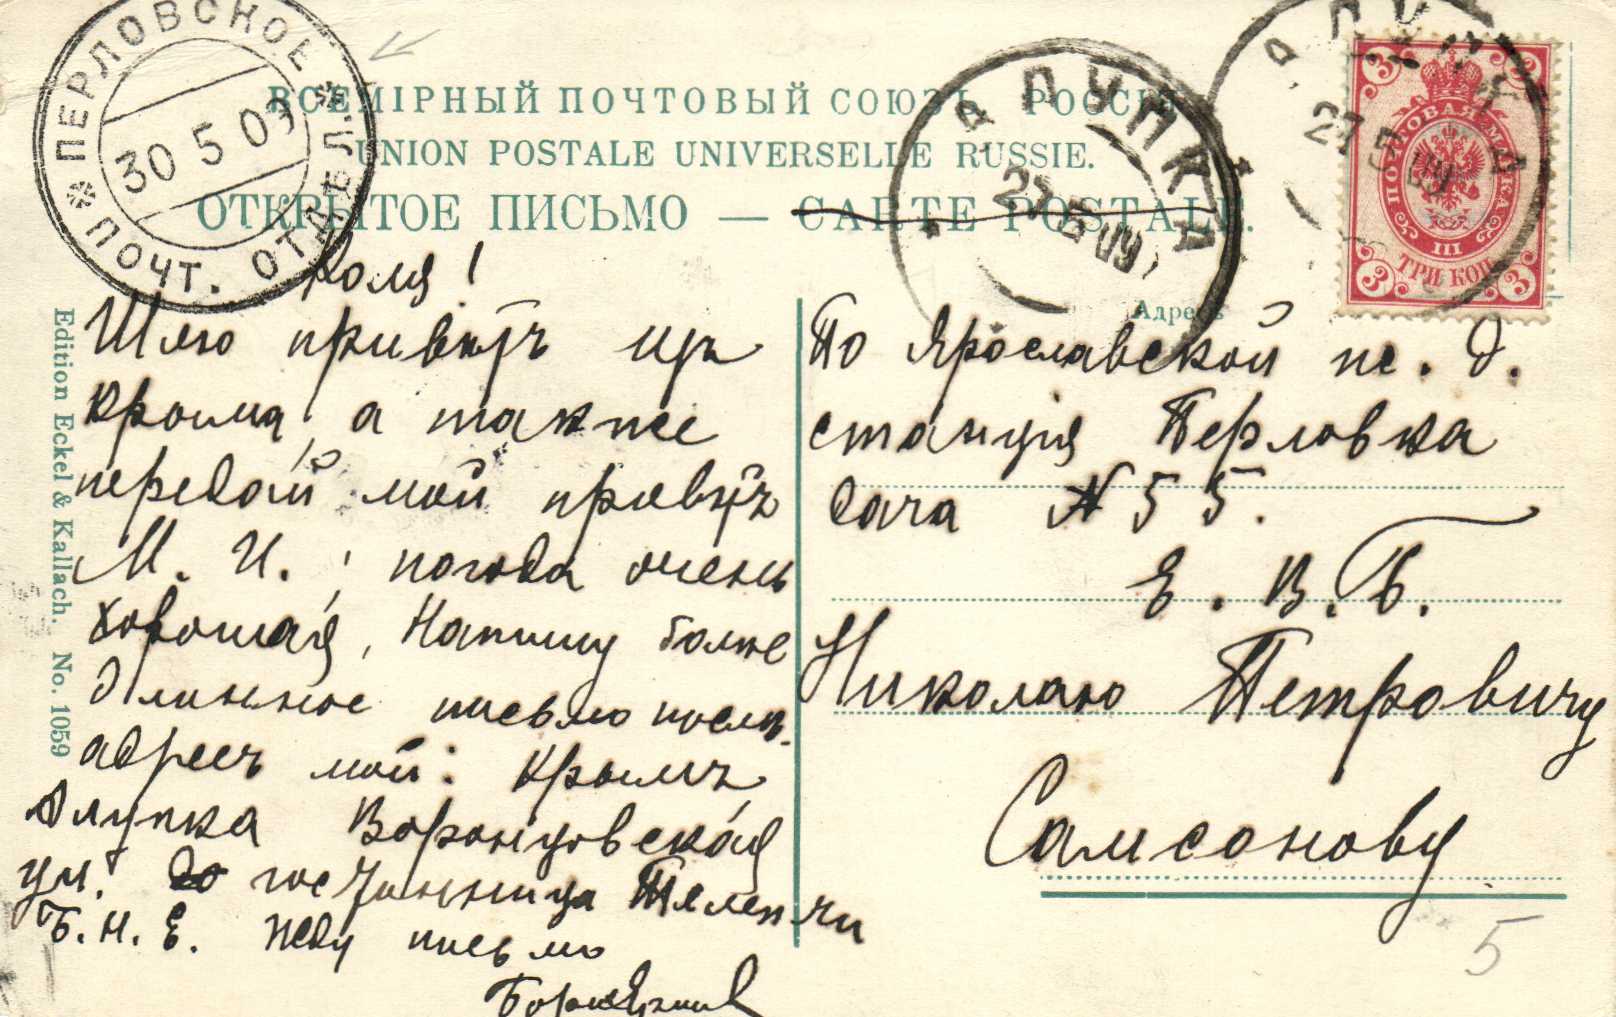 ВСЕМІРНЫЙ ПОЧТОВЫЙ СОЮЗЪ. РОССІЯ
UNION POSTALE UNIVERSELLE RUSSIE.
ОТКРЫТОЕ ПИСЬМО — CARTE POSTALE.
ПЕРЛОВСКОЕ ПОЧТ. ОТД.
30 5 09
АЛУПКА
27 5 09
АЛУПКА
27 5 09
ПОЧТОВАЯ МАРКА
III
ТРИ КОП.
3 3 3 3
Edition Eckel & Kallach. No. 1059
Коля!
Шлю привѣтъ изъ
Крыма, а также
передай мой привѣтъ
М. И., погода очень
хорошая, Напишу болѣе
длинное письмо послѣ.
адресъ мой: Крымъ
Алупка Воронцовская
ул. гостинница
Б. Н. Е. Жду письмо
Адресъ
По Ярославской ж. д.
станція Перловка
дача N 55.
Е. В. Б.
Николаю Петровичу
Самсонову
5